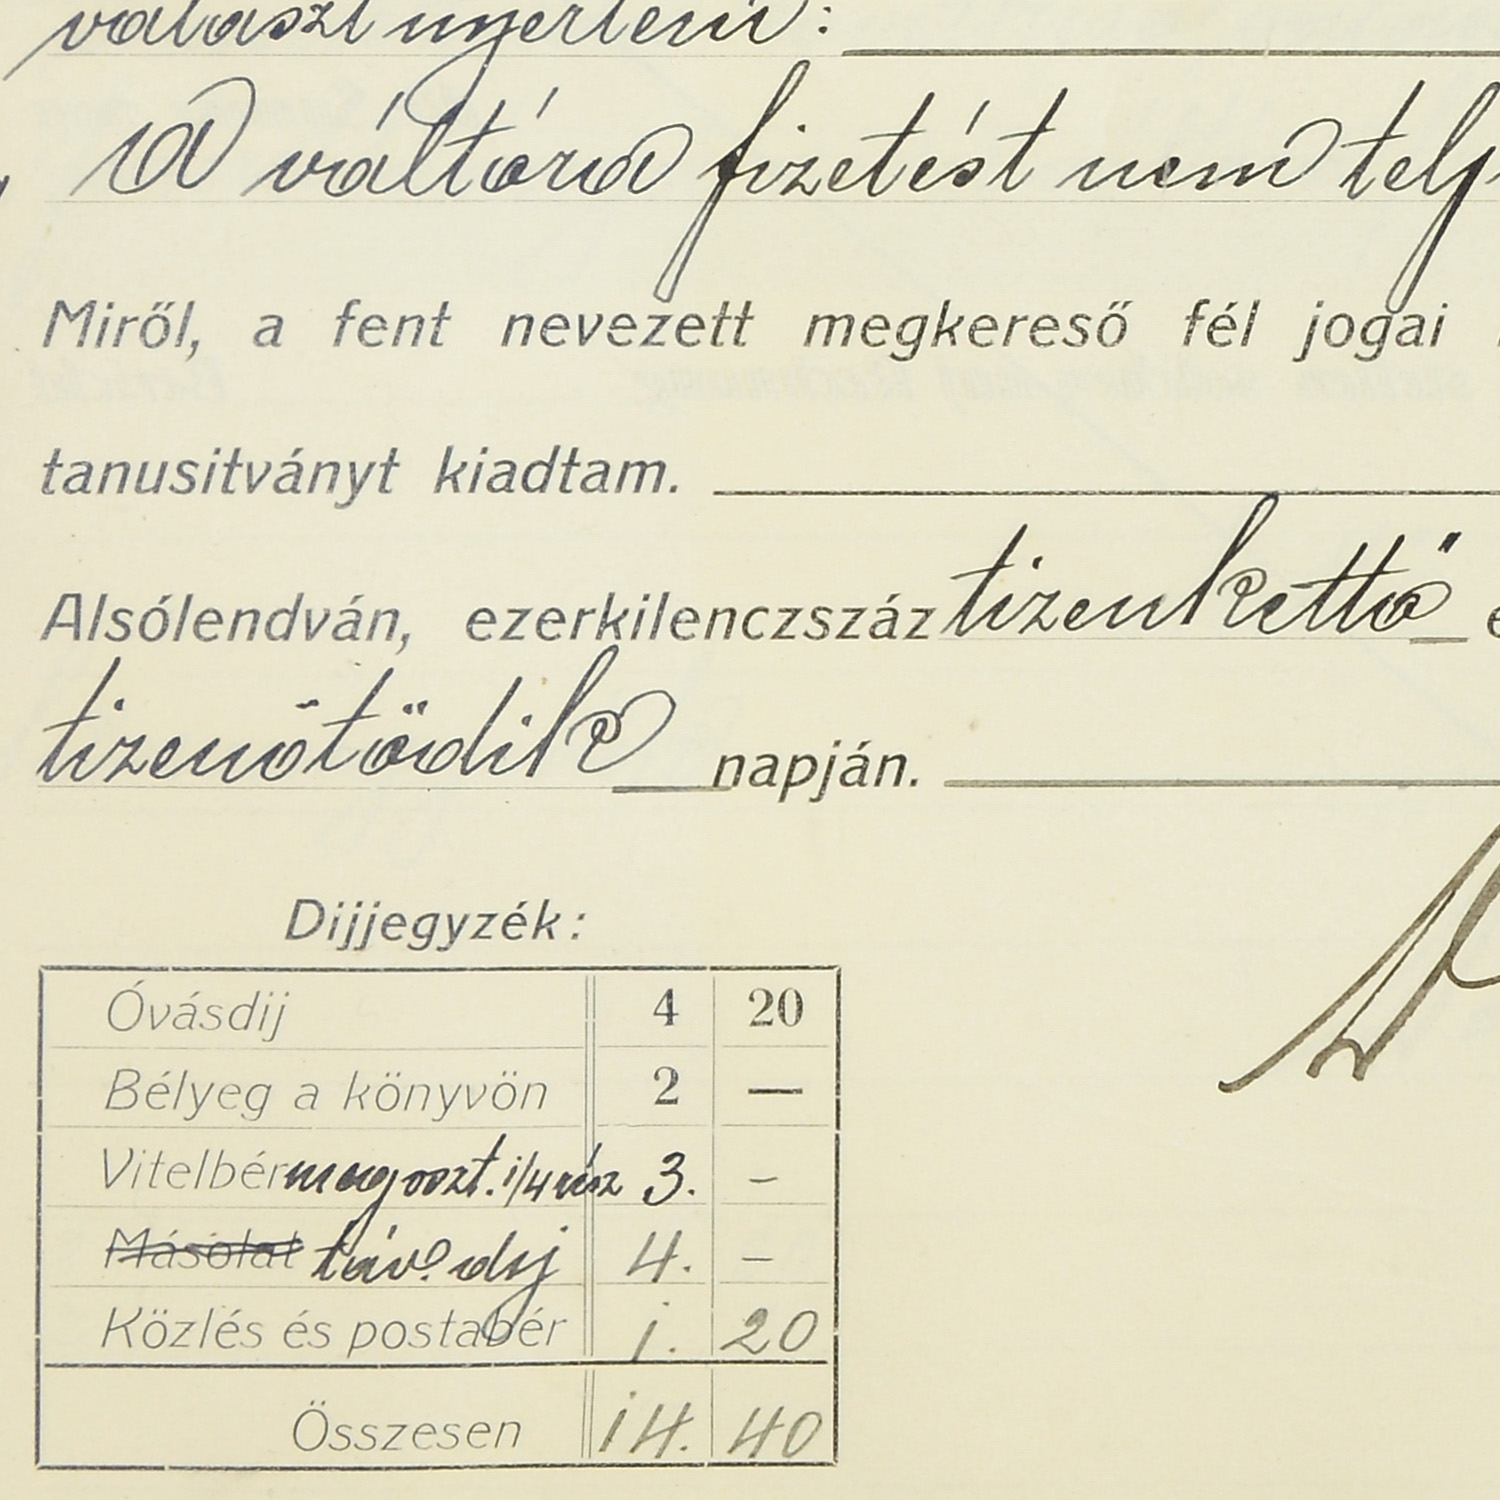 választ nyertem:
A váltóra fizetést nem telj
Miről, a fent nevezett megkereső fél jogai
tanusitványt kiadtam.
Alsólendván, ezerkilenczszáz tizenkettő
tizenötödik napján.
Dijjegyzék:
Óvásdij 4 20
Bélyeg a könyvön 2 —
Vitelbér megoszt. 1/4 rész 3. –
Másolat táv. dij 4. –
Közlés és postabér 1. 20
Összesen 14. 40